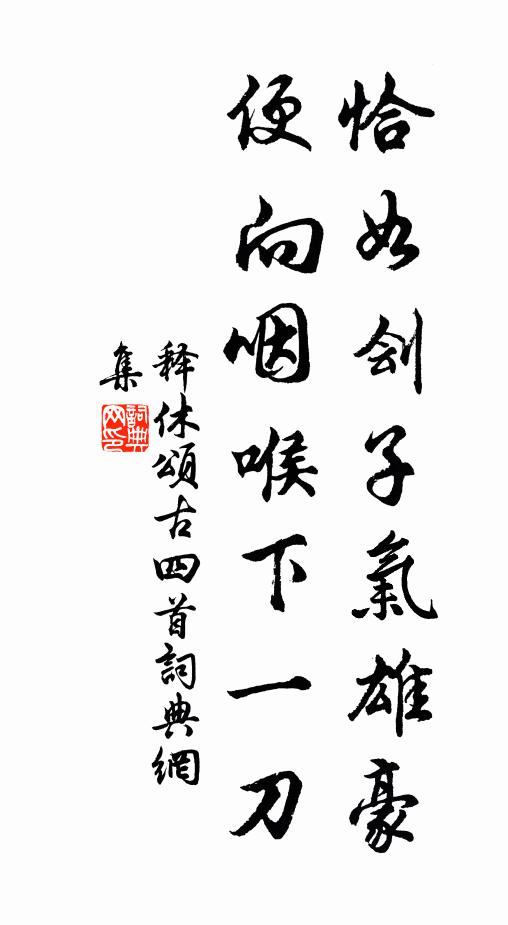 恰如劊子氣雄豪
便向咽喉下一刀
释休頌古四首詞典網
集
詞典网印